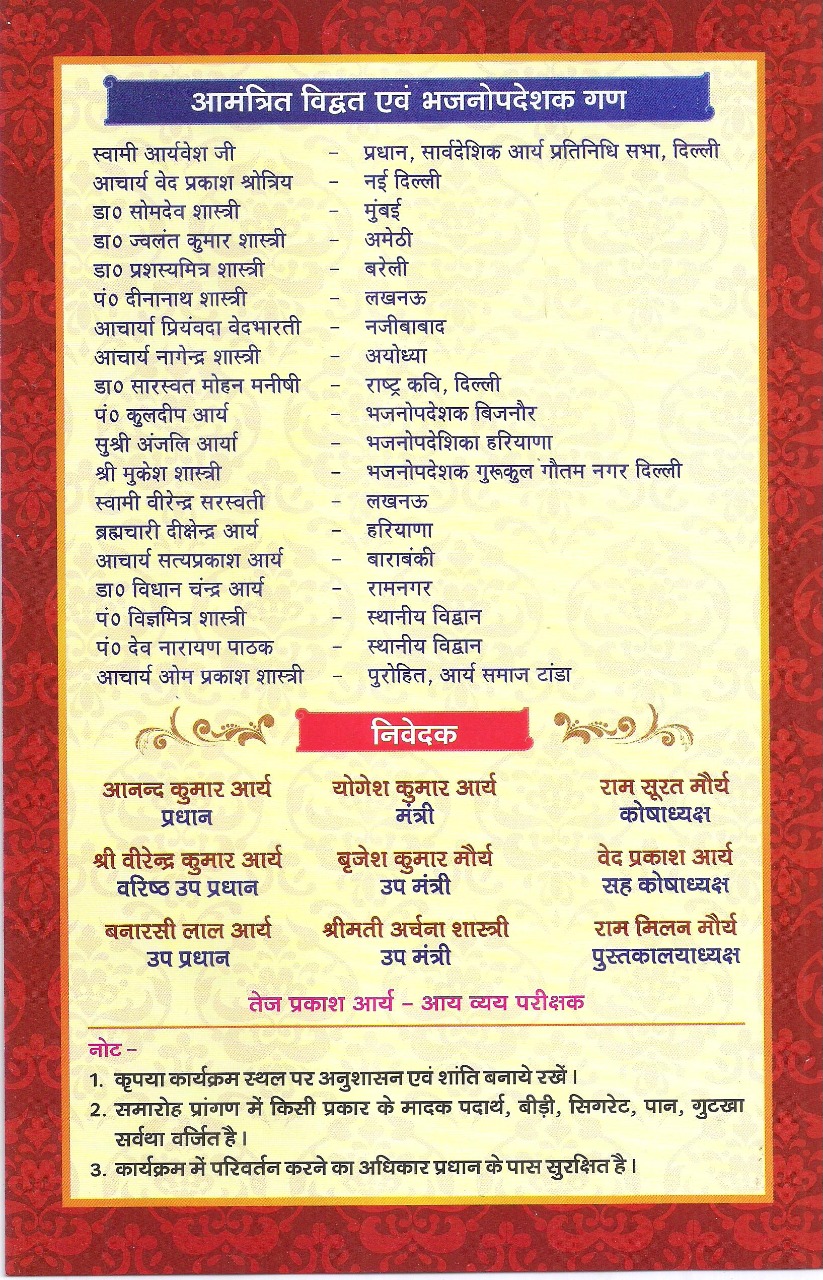 आमंत्रित विद्वत एवं भजनोपदेशक गण
स्वामी आर्यवेश जी - प्रधान, सार्वदेशिक आर्य प्रतिनिधि सभा, दिल्ली
आचार्य वेद प्रकाश श्रोत्रिय - नई दिल्ली
डा० सोमदेव शास्त्री - मुंबई
डा० ज्वलंत कुमार शास्त्री - अमेठी
डा० प्रशस्यमित्र शास्त्री - बरेली
पं० दीनानाथ शास्त्री - लखनऊ
आचार्या प्रियंवदा वेदभारती - नजीबाबाद
आचार्य नागेन्द्र शास्त्री - अयोध्या
डा० सारस्वत मोहन मनीषी - राष्ट्र कवि, दिल्ली
पं० कुलदीप आर्य - भजनोपदेशक बिजनौर
सुश्री अंजलि आर्या - भजनोपदेशिका हरियाणा
श्री मुकेश शास्त्री - भजनोपदेशक गुरूकुल गौतम नगर दिल्ली
स्वामी वीरेन्द्र सरस्वती - लखनऊ
ब्रह्मचारी दीक्षेन्द्र आर्य - हरियाणा
आचार्य सत्यप्रकाश आर्य - बाराबंकी
डा० विधान चंन्द्र आर्य - रामनगर
पं० विज्ञमित्र शास्त्री - स्थानीय विद्वान
पं० देव नारायण पाठक - स्थानीय विद्वान
आचार्य ओम प्रकाश शास्त्री - पुरोहित, आर्य समाज टांडा
निवेदक
आनन्द कुमार आर्य योगेश कुमार आर्य राम सूरत मौर्य
प्रधान मंत्री कोषाध्यक्ष
श्री वीरेन्द्र कुमार आर्य बृजेश कुमार मौर्य वेद प्रकाश आर्य
वरिष्ठ उप प्रधान उप मंत्री सह कोषाध्यक्ष
बनारसी लाल आर्य श्रीमती अर्चना शास्त्री राम मिलन मौर्य
उप प्रधान उप मंत्री पुस्तकालयाध्यक्ष
तेज प्रकाश आर्य – आय व्यय परीक्षक
नोट –
1. कृपया कार्यक्रम स्थल पर अनुशासन एवं शांति बनाये रखें।
2. समारोह प्रांगण में किसी प्रकार के मादक पदार्थ, बीड़ी, सिगरेट, पान, गुटखा
सर्वथा वर्जित है।
3. कार्यक्रम में परिवर्तन करने का अधिकार प्रधान के पास सुरक्षित है।